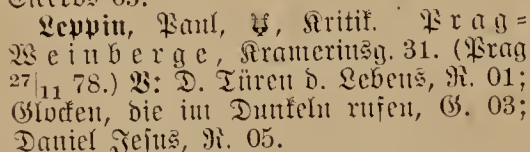 Leppin, Paul, Kritik. Prag=
Weinberge, Krameriusg. 31. (Prag
27|11 78.) V: D. Türen d. Lebens, R. 01;
Glocken, die im Dunkeln rufen, G. 03;
Daniel Jesus, R. 05.